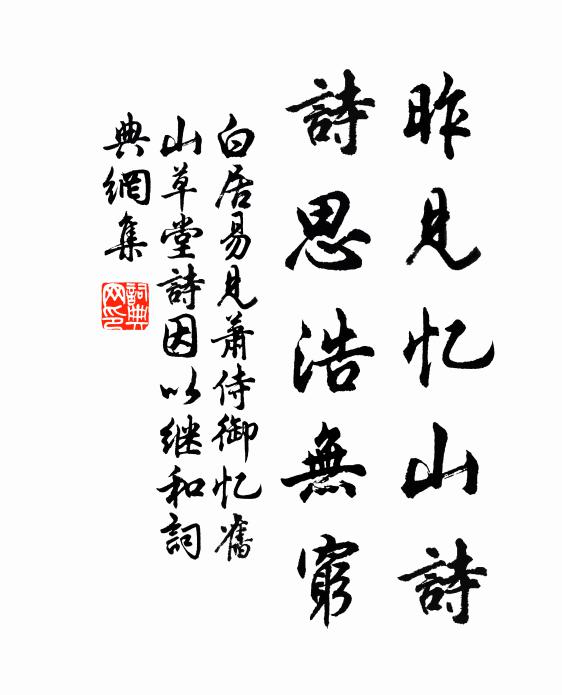 昨見忆山詩
詩思浩無窮
白居易見萧侍御忆舊
山草堂詩因以继和詞
典網集
詞典
网印